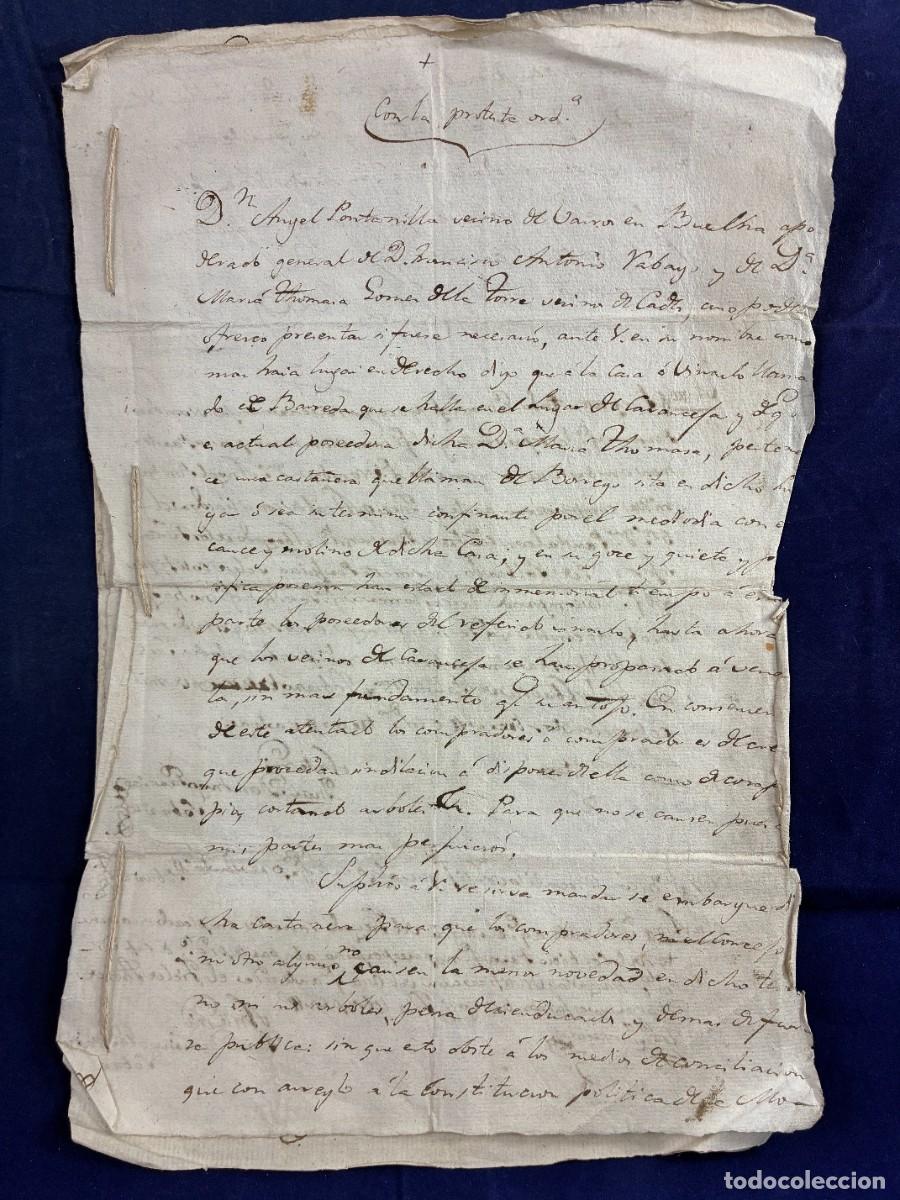 +
Con la protesta ord.ª
D.n Angel Pontanilla vecino de Barros en Buelna apo
derado general de D. Francisco Antonio y de D.ª
Maria Thomasa Gomez de la Torre vecinos de Cadiz, cuyo poder
ofrezco presentar si fuese necesario, ante V. en su nombre como
mas haia lugar en derecho digo que á la Casa ó Vinculo llama
do de Barreda que se halla en el lugar de Caranceja y de q.e
es actual poseedora dicha D.ª Maria Thomasa, pertene
ce una castañera que llaman de Borrego sita en dicho lu
gar ó sea su termino confinante por el mediodia con el
cauce y molino de dicha Casa, y en su goce y quieta y pa
sifica posesion han estado de inmemorial tiempo á esta
parte los poseedores del referido vinculo, hasta ahora
que los vecinos de Caranceja se han propasado á vender
la, sin mas fundamento q.e su antojo. En consecuen
de este atentado los compradores o comprador es de creer
que procedan sin dilacion á disponer de ella como de cosa
pia, cortando arboles &. Para que no se causen pues á
mis partes mas perjuicios,
Suplico á V. se sirva mandar se embargue di
cha castañera para que los compradores, ni el Concejo
ni otro alguno no causen la menor novedad en dicho te
no ni sus arboles, pena de y demas de fuer
za publica: sin que esto obste á los medios de conciliacion
que con arreglo á la Constitucion politica de la Mo-
todocoleccion